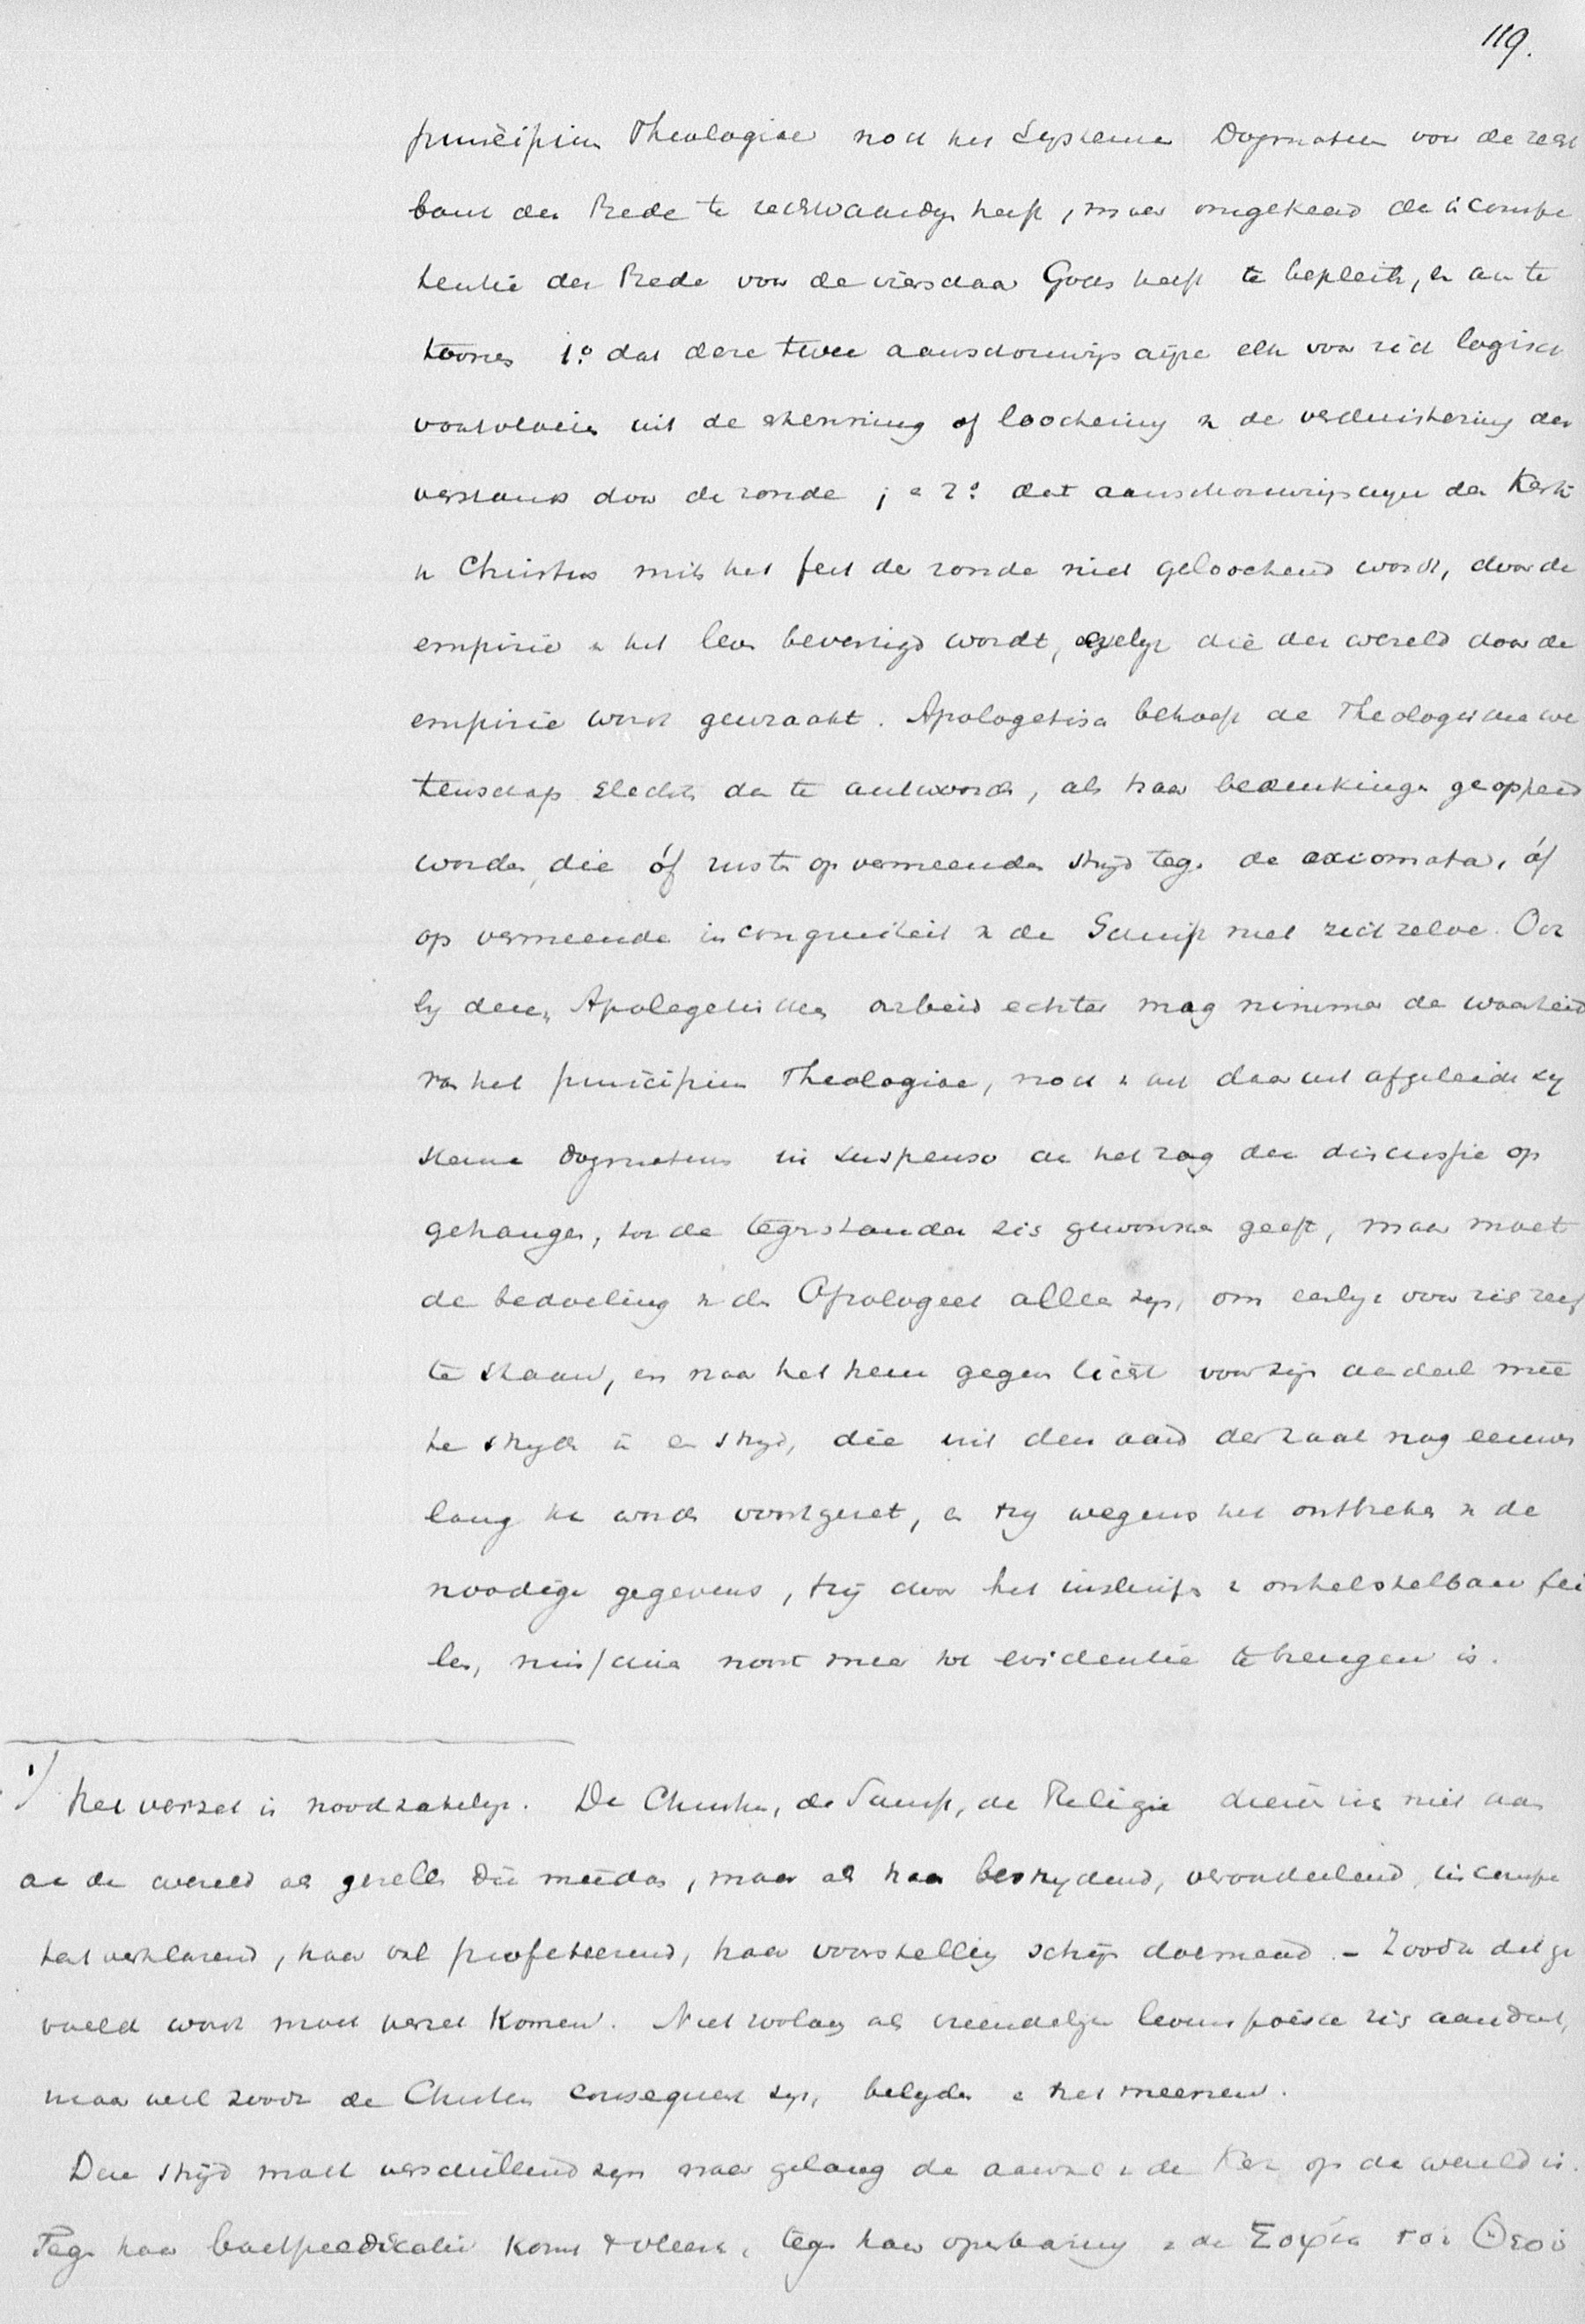 119.
principium Theologiae noch het Systema Dogmaton voor de recht
bank der Rede te rechtvaardigen heeft, maar omgekeerd de incompe
tentie der Rede voor de vierschaar Gods heeft te bepleiten, en aan te
toonen 1º dat deze twee aanschouwingswijzen elk voor zich logisch
voortvloeien uit de erkenning of loochening v. de verduistering des
verstands door de zonde; en 2º dat aanschouwingswijze der Kerk
v Christus mits het feit der zonde niet geloochend wordt, door de
empirie en het leven bevestigd wordt, gelijk die der wereld door de
empirie wordt gewraakt. Apologetisch behoeft de Theologische we
tenschap slechts dan te antwoorden, als haar bedenkingen geopperd
worden, die óf rusten op vermeenden strijd tegen de axiomata, óf
op vermeende incongruiteit v. de Schrift met zichzelve. Ook
bij dezen Apologetischen arbeid echter mag nimmer de waarheid
van het principium Theologiae, noch v. het daaruit afgeleide sy
stema dogmaton in suspenso aan het rag der discussie op
gehangen, tot de tegenstander zich gewonnen geeft, maar moet
de bedoeling v. den Apologeet alleen zijn, om eerlijk voor zich zelf
te staan, en naar het hem gegeven licht voor zijn aandeel mee
te strijden in een strijd, die uit den aard der zaak nog eeuwen
lang kan worden voortgezet, en hij wegens het ontbreken v. de
noodige gegevens, hij door het insluipen v. onherstelbare fei
len, misschien nooit meer tot evidentie te brengen is.
1) Het verzet is noodzakelijk. De Christus, de Schrift, de Religie dienen zich niet aan
aan de wereld als gezellen die meedoen, maar als haar bestrijdend, veroordeelend, incompe
tent verklarend, haar val profeteerend, haar voorstelling schijn doemend. – Zoodra dat ge
voeld wordt moet verzet komen. Niet zoolang als vriendelijke levenspoëzie zich aandient,
maar wel zoodra de Christen consequent zijn, belijden en het meenen.
Deze strijd moet verschillend zijn naar gelang de aanval v. de Kerk op de wereld is.
Tegen haar boetpredicatie komt 't vleesch, tegen haar openbaring v. de Σοφία τοῦ Θεοῦ